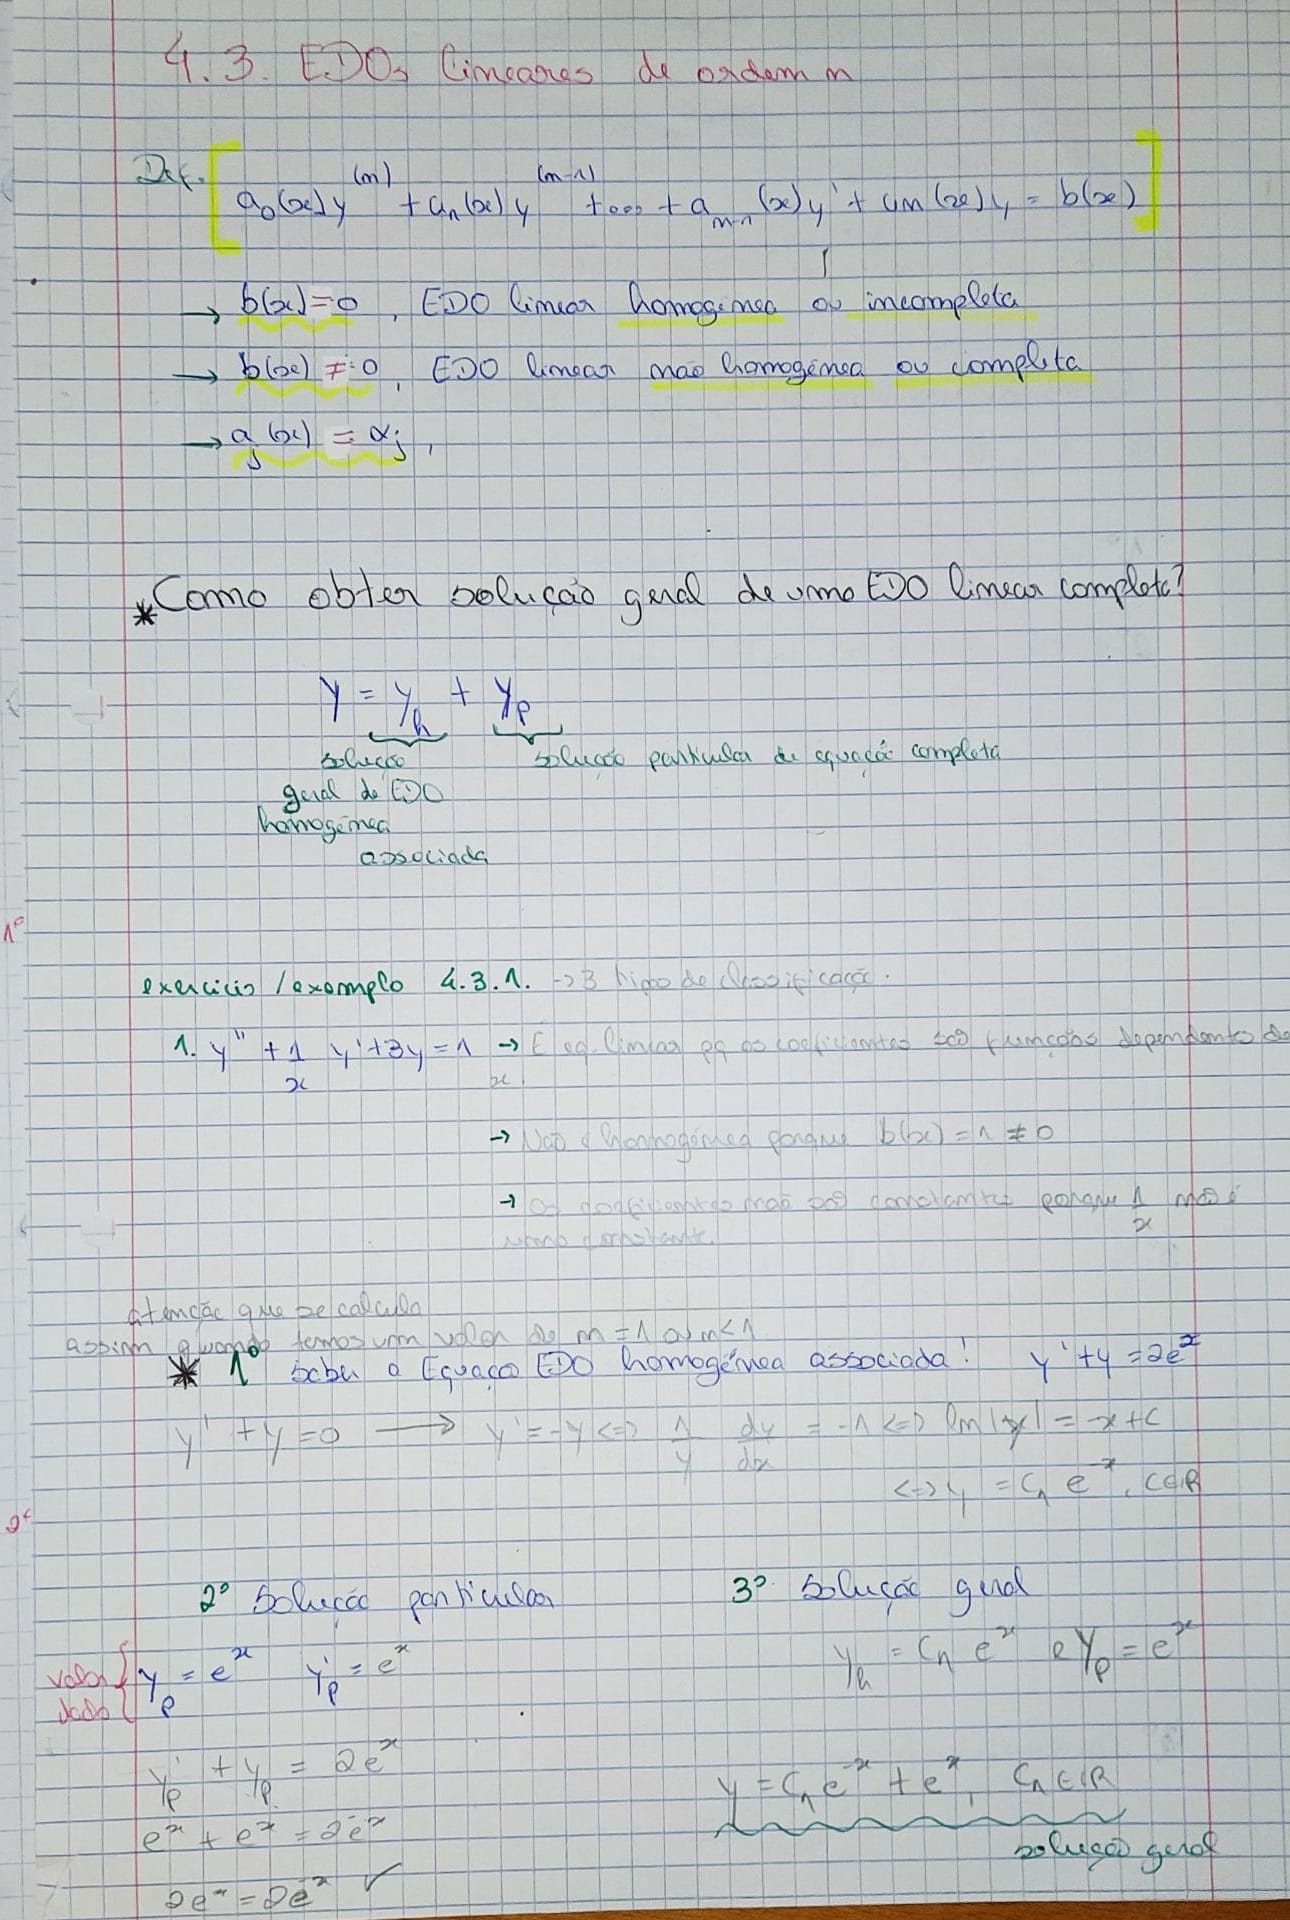 4.3. EDOs lineares de ordem n
Def. [ a₀(x)y⁽ⁿ⁾ + a₁(x)y⁽ⁿ⁻¹⁾ + ... + aₙ₋₁(x)y' + aₙ(x)y = b(x) ]
→ b(x)=0, EDO linear homogénea ou incompleta
→ b(x) ≠ 0, EDO linear não homogénea ou completa
→ aⱼ(x) = αⱼ,
* Como obter solução geral de uma EDO linear completa?
y = y_h + y_p
solução geral de EDO homogénea associada
solução particular de equação completa
1º
exercício / exemplo 4.3.1. -> 3 tipo de classificação.
1. y'' + 1/x y' + 3y = 1 → É eq. linear pq os coeficientes são funções dependentes de x.
→ Não é homogénea porque b(x) = 1 ≠ 0
→ Os coeficientes não são constantes porque 1/x não é
uma constante.
atenção que se calcula
assim quando temos um valor de n = 1 ou n < 1
* 1º saber a Equaço EDO homogénea associada! y' + y = 2eˣ
y' + y = 0 → y' = -y <=> 1/y dy/dx = -1 <=> ln|y| = -x + C
<=> y = C₁ e⁻ˣ, C∈ℝ
2º
2º Solução particular
valor dado { y_p = eˣ y'_p = eˣ
y'_p + y_p = 2eˣ
eˣ + eˣ = 2eˣ
2eˣ = 2eˣ ✓
3º Solução geral
y_h = C₁ eˣ e y_p = eˣ
y = C₁ e⁻ˣ + eˣ, C₁ ∈ ℝ
solução geral